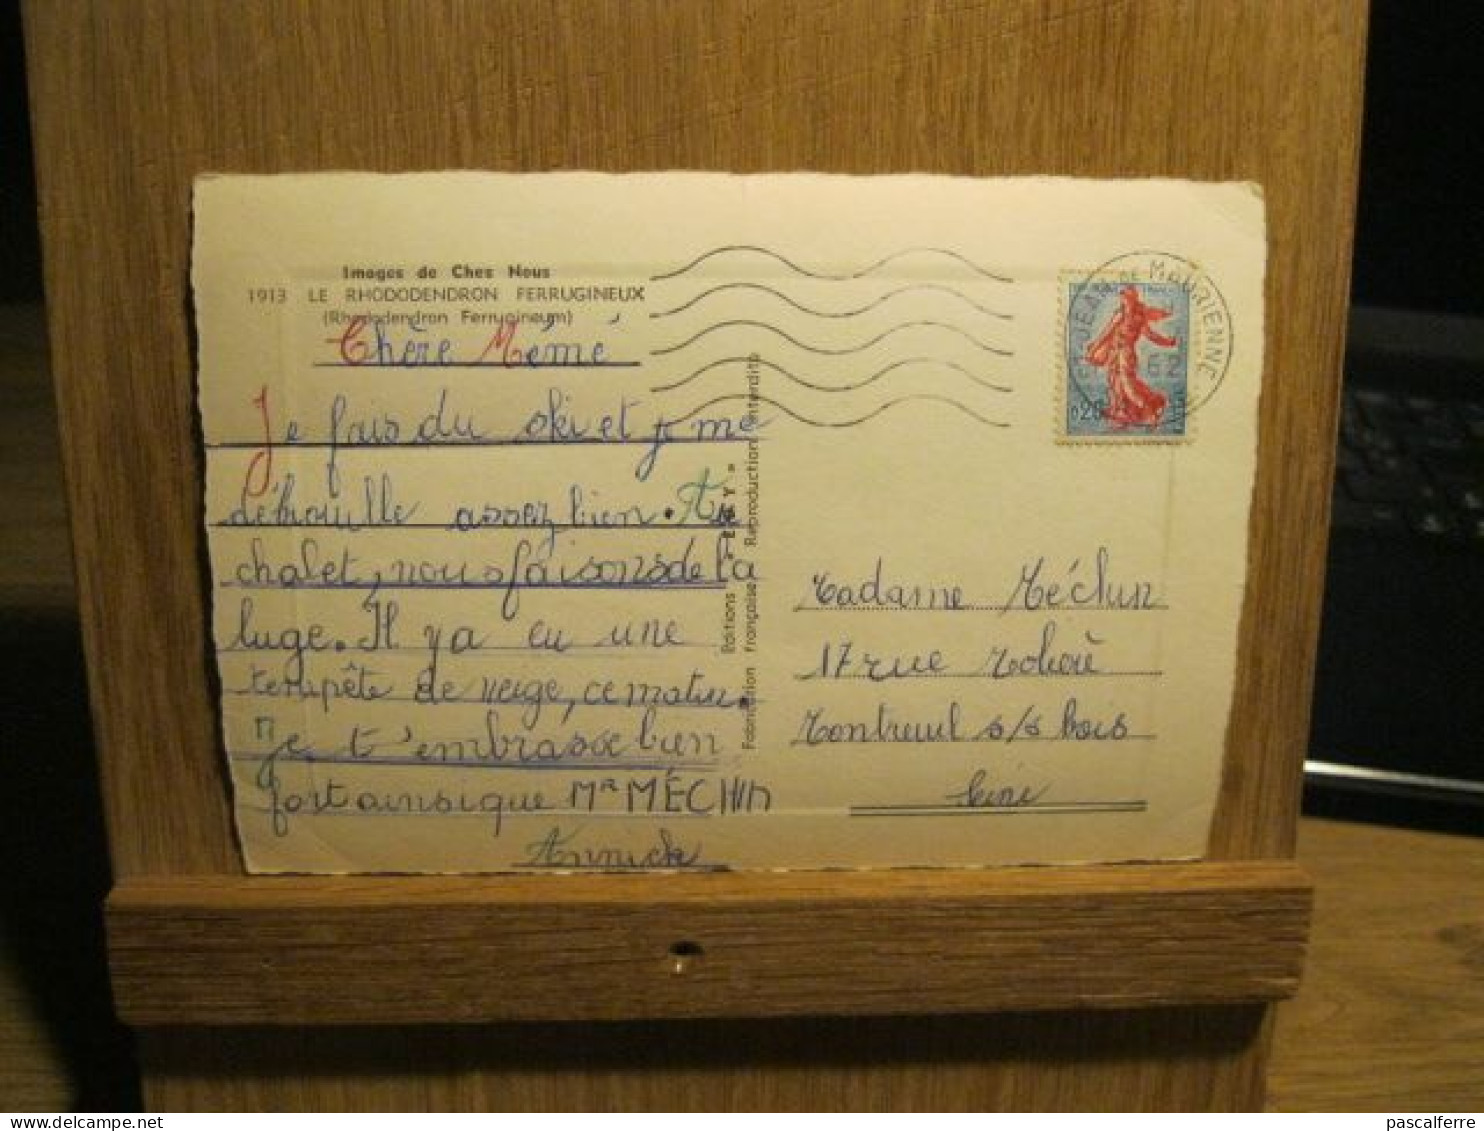 Images de Chez Nous
1913 LE RHODODENDRON FERRUGINEUX
(Rhododendron Ferrugineum)
Chère Mémé
Je fais du ski et je me
débrouille assez bien. Au
chalet, nous faisons de la
luge. Il y a eu une
tempête de neige, ce matin.
Je t'embrasse bien
fort ainsi que Mr MÉCHIN
Annick
Editions
Fabrication française, Reproduction interdite
JEAN DE MAURIENNE
62
0,20
Madame Méchin
17 rue Molière
Montreuil s/s bois
Seine
pascalferre